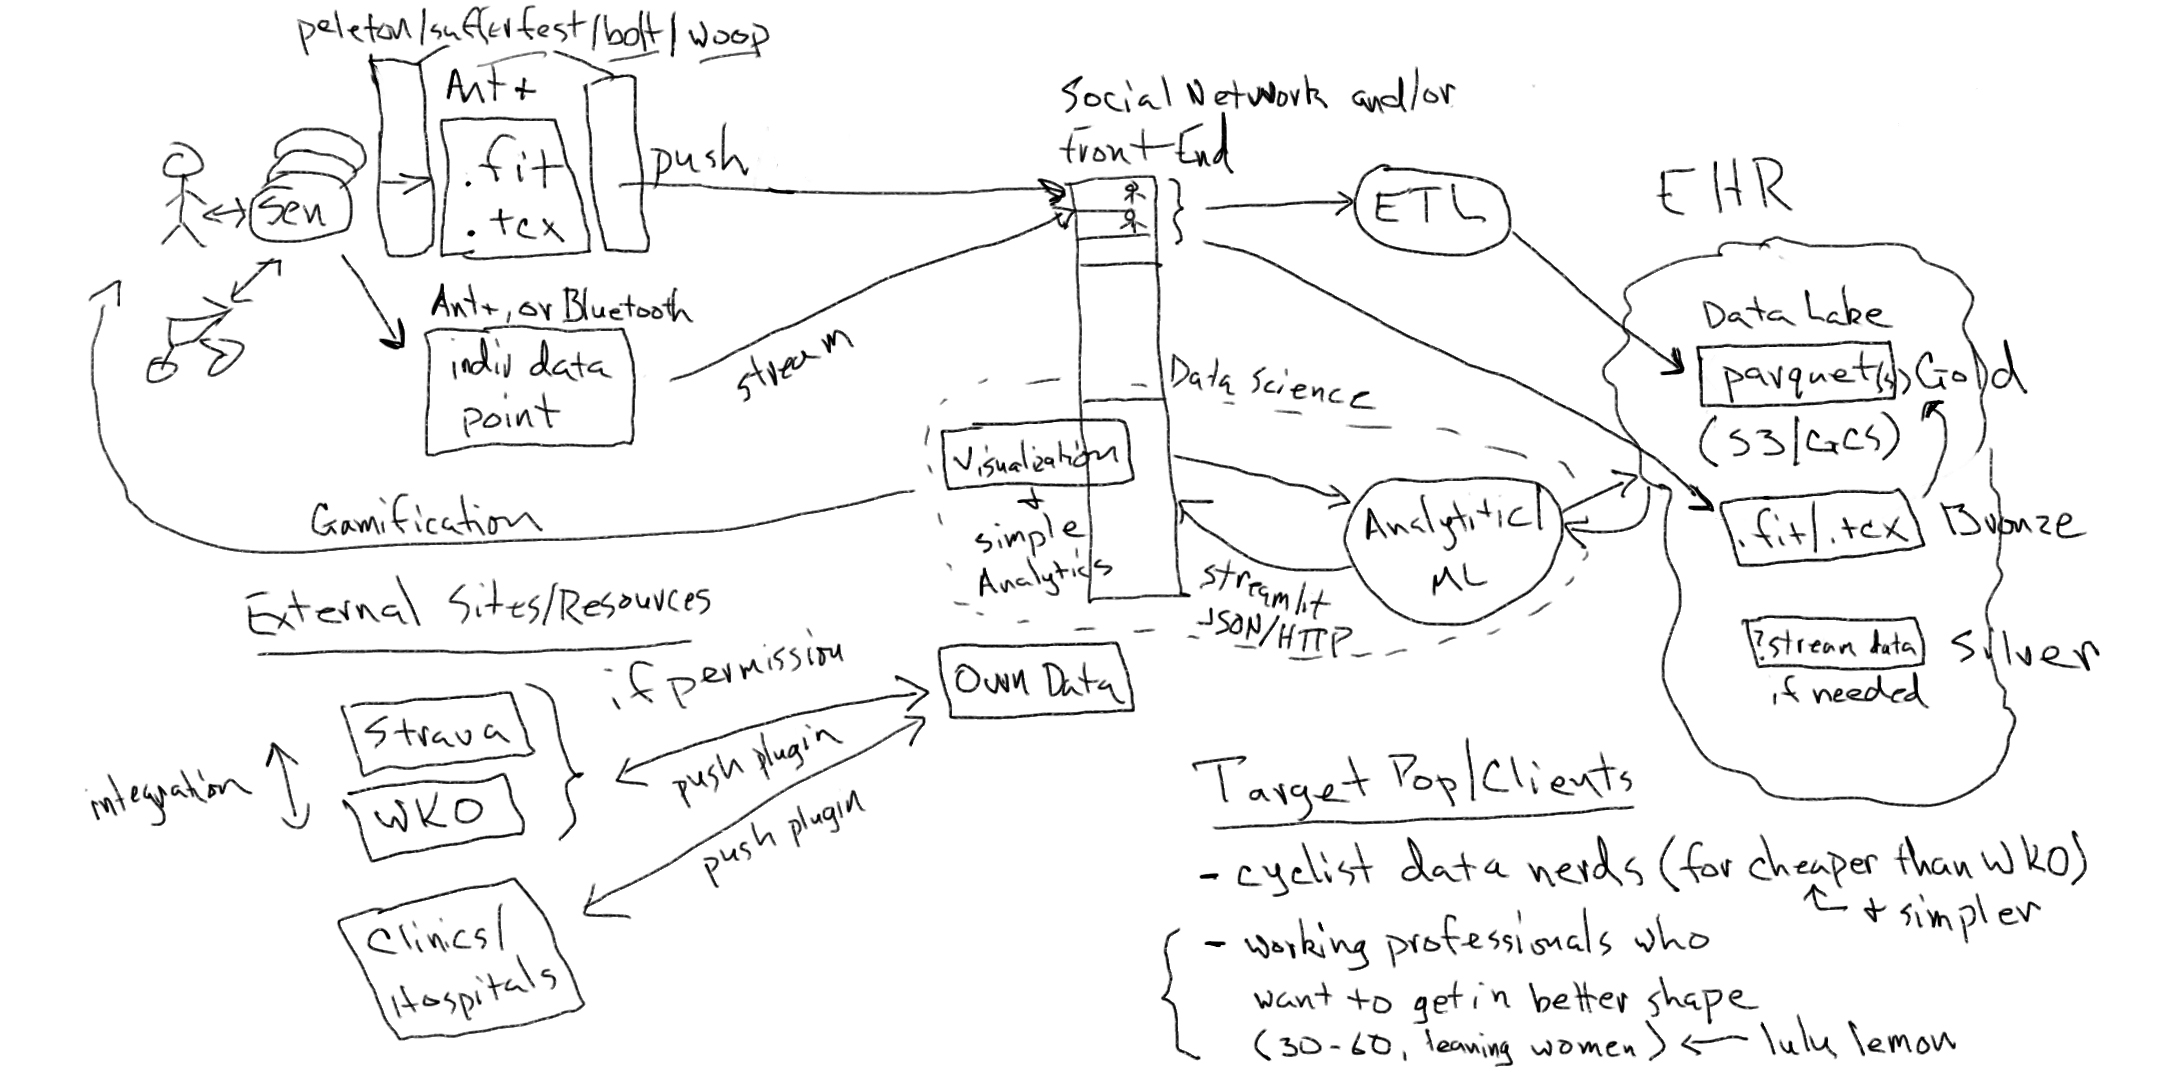 peleton/sufferfest/bolt/woop
Ant+
.fit
.tcx
sen
push
Ant+, or Bluetooth
indiv data
point
stream
Social Network and/or
Front-End
ETL
EHR
Data Lake
parquet(s) Gold
(S3/GCS)
.fit/.tcx Bronze
?stream data Silver
if needed
Data Science
Visualization
+
simple
Analytics
Analytiticl
ML
streamlit
JSON/HTTP
Gamification
External Sites/Resources
if permission
Strava
WKO
integration
push plugin
push plugin
Own Data
Clinics/
Hospitals
Target Pop/Clients
- cyclist data nerds (for cheaper than WKO)
+ simpler
- working professionals who
want to get in better shape
(30-60, leaning women) ← lulu lemon